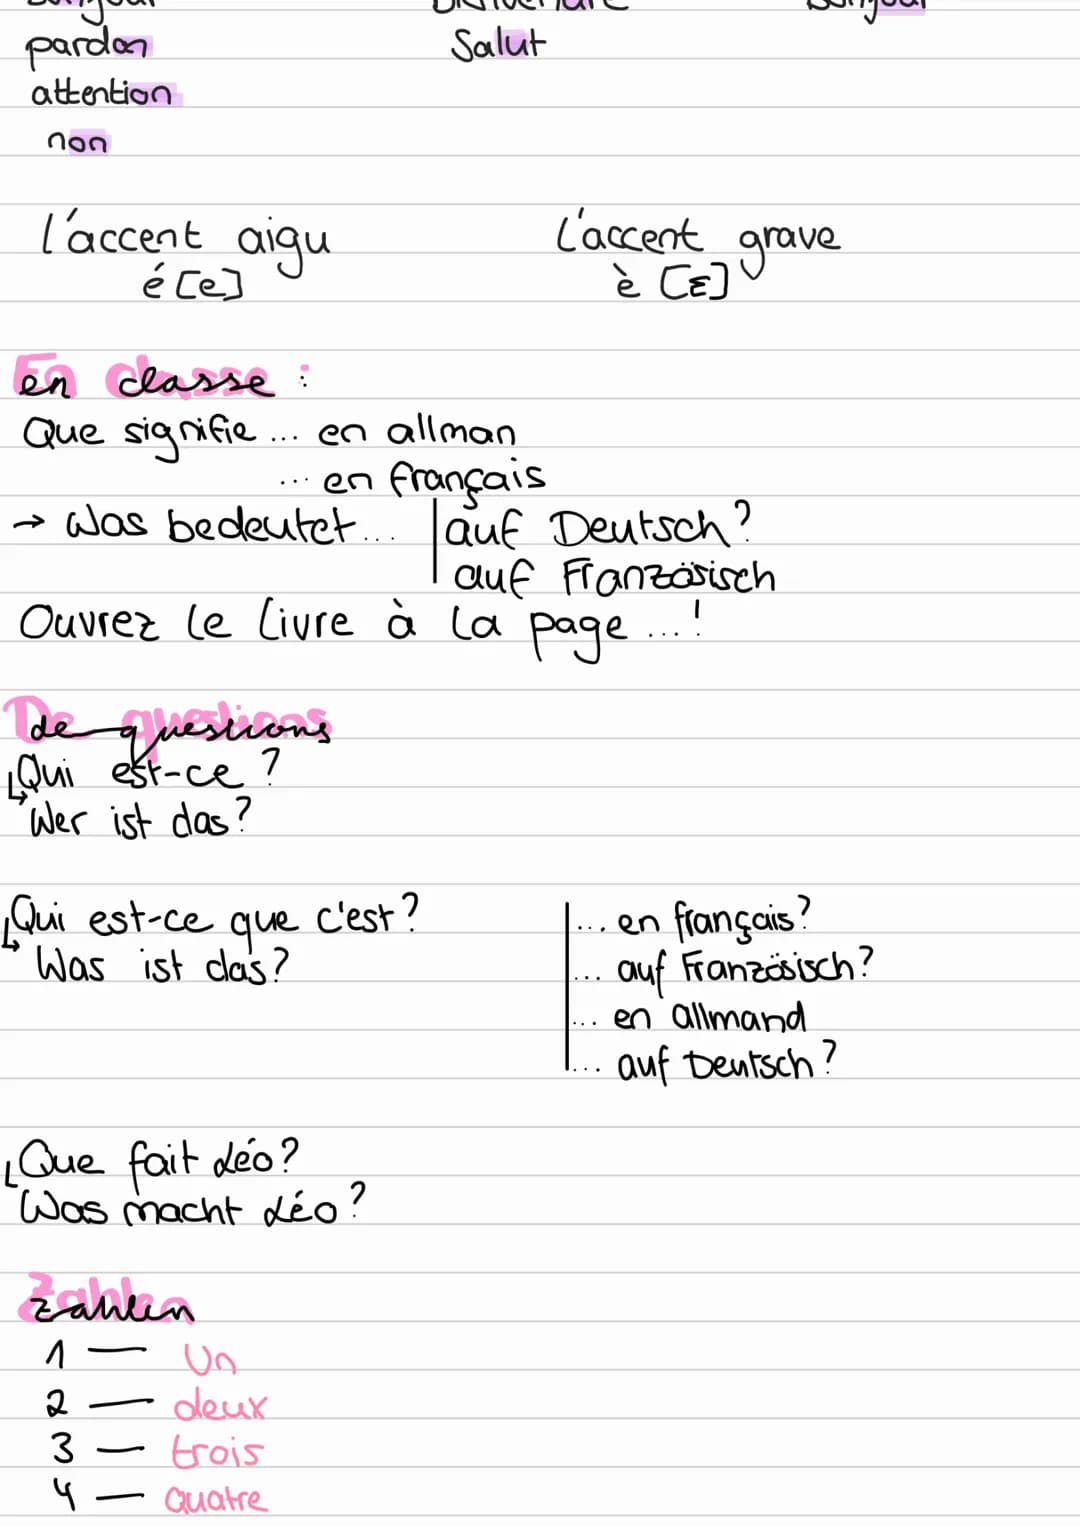 pardon Salut
attention
non
l'accent aigu L'accent grave
é [e] è [ɛ]
en classe :
Que signifie ... en allman
... en français
→ Was bedeutet ... | auf Deutsch?
auf Französisch
Ouvrez le livre à la page ...!
De questions
Qui est-ce ?
Wer ist das?
Qui est-ce que c'est? ... en français?
Was ist das? ... auf Französisch?
... en allmand
... auf Deutsch?
Que fait Léo?
Was macht Léo?
Zahlen
1 — Un
2 — deux
3 — trois
4 — quatre